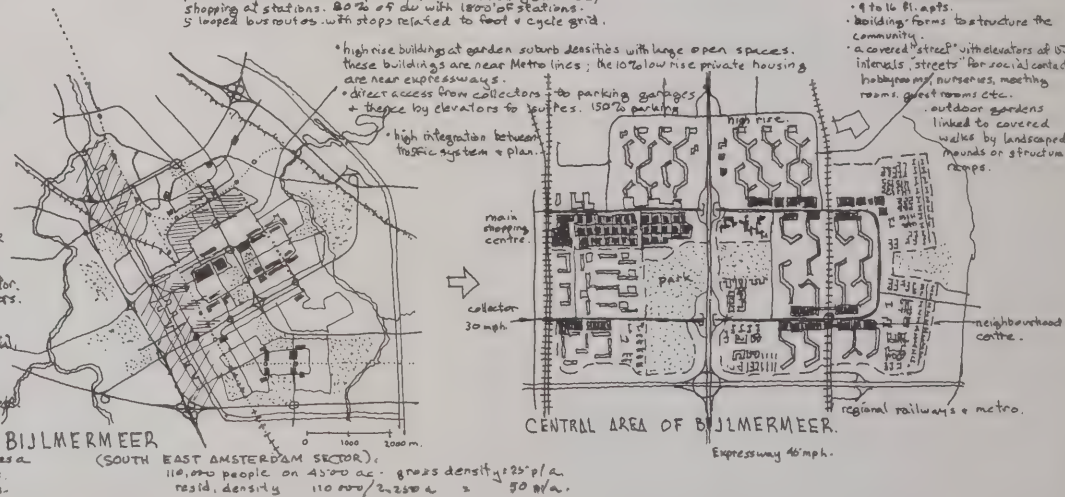 shopping at stations. 80% of du with 1800' of stations.
5 looped bus routes with stops related to foot & cycle grid.
• high rise buildings at garden suburb densities with large open spaces.
these buildings are near Metro lines; the 10% low rise private housing
are near expressways.
• direct access from collectors to parking garages
& thence by elevators to suites. 150% parking
• high integration between
traffic system & plan.
• 9 to 16 fl. apts.
• building forms to structure the
community.
• a covered "street" with elevators at
intervals, "streets" for social contact
hobbyrooms, nurseries, meeting
rooms, guest rooms etc.
• outdoor gardens
linked to covered
walks by landscaped
mounds or
ramps.
high rise.
main
shopping
centre.
park
collector
30 mph.
neighbourhood
centre.
regional railways & metro.
CENTRAL AREA OF BIJLMERMEER.
Expressway 45 mph.
0 1000 2000 m.
BIJLMERMEER
(SOUTH EAST AMSTERDAM SECTOR).
110,000 people on 4500 ac. gross density = 25 p/a.
resid. density 110 000/2,250 a = 50 p/a.